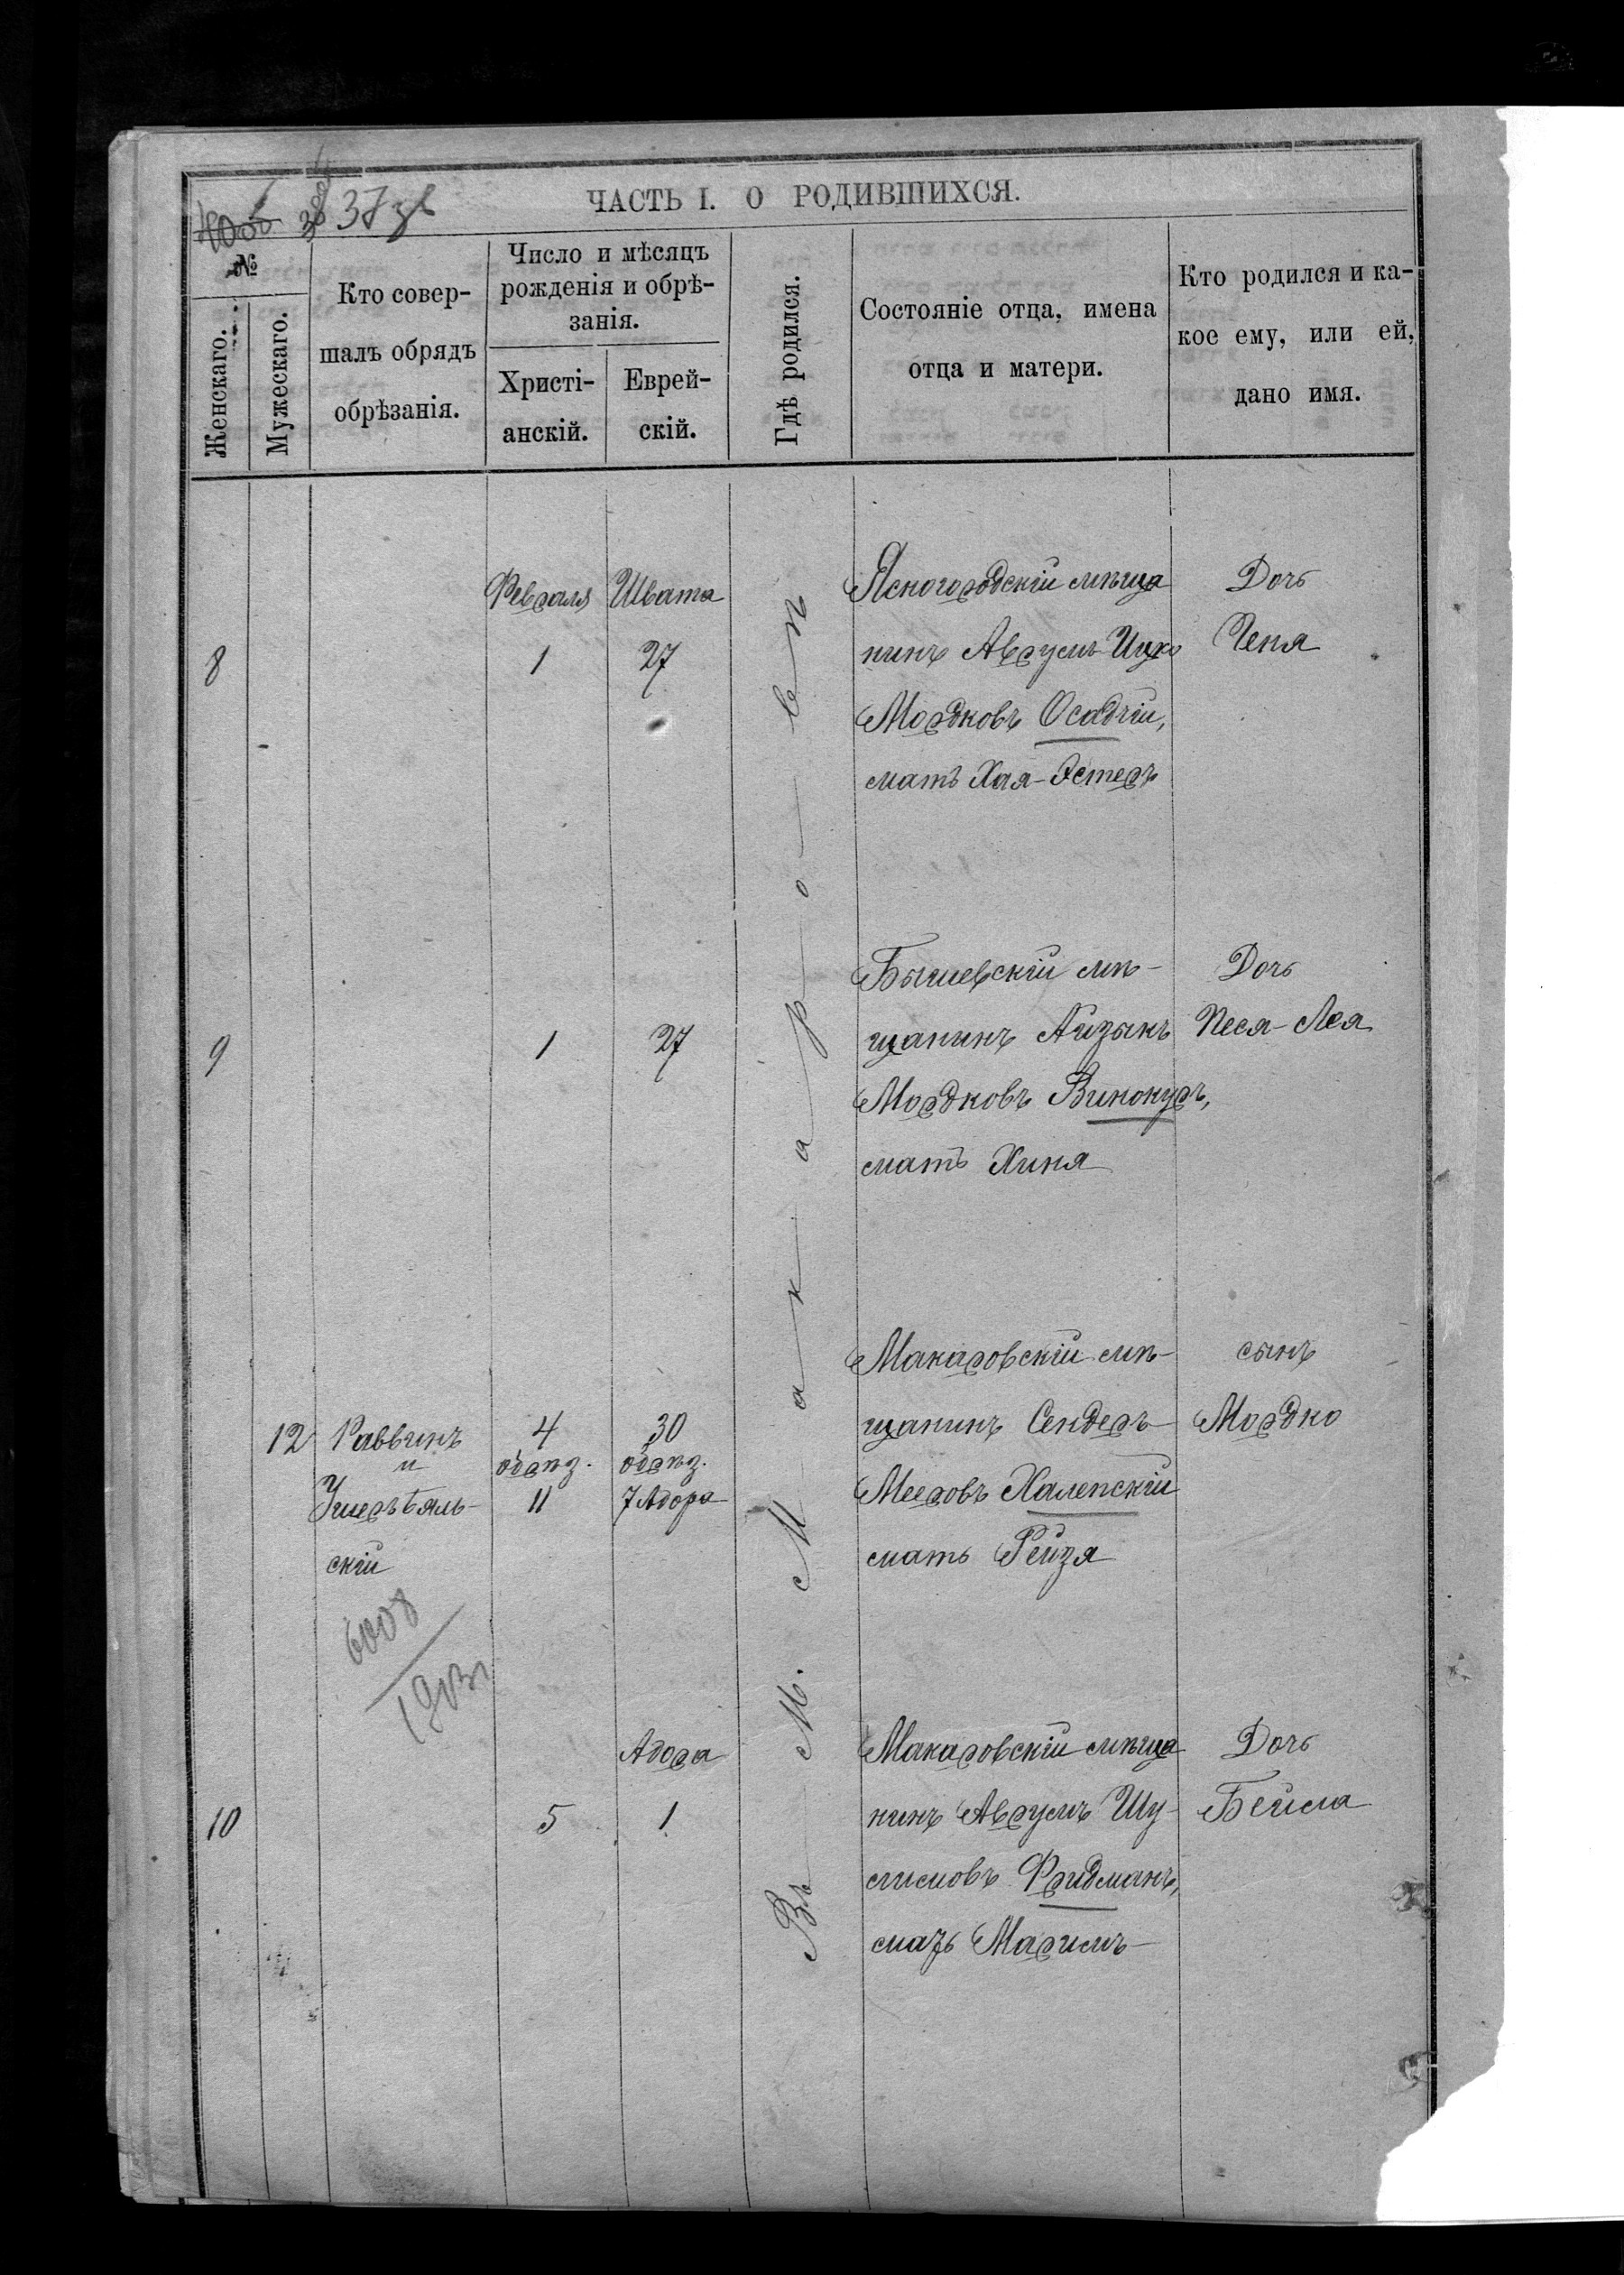 37 зв
ЧАСТЬ I. О РОДИВШИХСЯ.
№
Женскаго.
Мужескаго.
Кто совер-
шалъ обрядъ
обрѣзанія.
Число и мѣсяцъ
рожденія и обрѣ-
занія.
Христі-
анскій.
Еврей-
скій.
Гдѣ родился.
Состояніе отца, имена
отца и матери.
Кто родился и ка-
кое ему, или ей,
дано имя.
Въ М. Макаровѣ
8
Февраля
1
Швата
27
Ясногородскій мѣща
нинъ Аврумъ-Ицко
Мордковъ Осадчій,
мать Хая-Эстеръ
Дочь
Ченя
9
1
27
Бышевскій мѣ-
щанинъ Айзыкъ
Мордковъ Винокуръ,
мать Хиня
Дочь
Песя-Лея
12
Раввинъ
и
Ушеръ Бяль-
скій
4
обрѣз.
11
30
обрѣз.
7 Адора
Макаровскій мѣ-
щанинъ Сендеръ
Мееровъ Халепскій
мать Рейзя
сынъ
Мордко
6008
10
5
Адора
1
Макаровскій мѣща
нинъ Аврумъ Шу-
лимовъ Фридманъ,
мать Маримъ
Дочь
Бейла